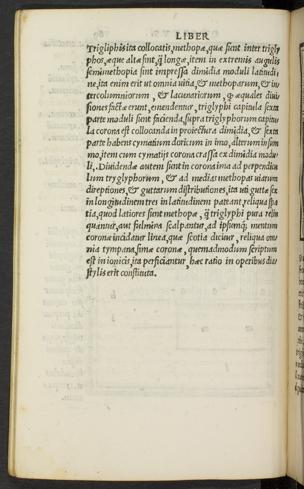 LIBER
Trigliphis ita collocatis, methopæ, quæ sunt inter trigly
phos, æque altæ sint, q̃ longæ, item in extremis angulis
semimethopia sint impressa dimidia moduli latitudi
ne, ita enim erit ut omnia uitia, & methoparum, & in
tercolumniorum, & lacunariorum, q̃ æquales diui
siones factæ erunt, emendentur, triglyphi capitula sexta
parte moduli sunt facienda, supra triglyphorum capitu
la corona est collocanda in proiectura dimidia, & sexta
parte habens cymatium doricum in imo, alterum in sum
mo, item cum cymatijs corona crassa ex dimidia modu
li, Diuidendæ autem sunt in corona ima ad perpendicu
lum tryglyphorum, & ad medias methopas uiarum
direptiones, & guttarum distributiones, ita uti guttæ sex
in longitudinem tres in latitudinem pateant, reliqua spa
tia, quod latiores sient methopæ, q̃ triglyphi pura relin
quantur, aut fulmina scalpantur, ad ipsumq; mentum
coronæ incidatur linea, quæ scotia dicitur, reliqua om
nia tympana, simæ coronæ, quemadmodum scriptum
est in ionicis, ita perficiantur, hæc ratio in operibus dia
stylis erit constituta.